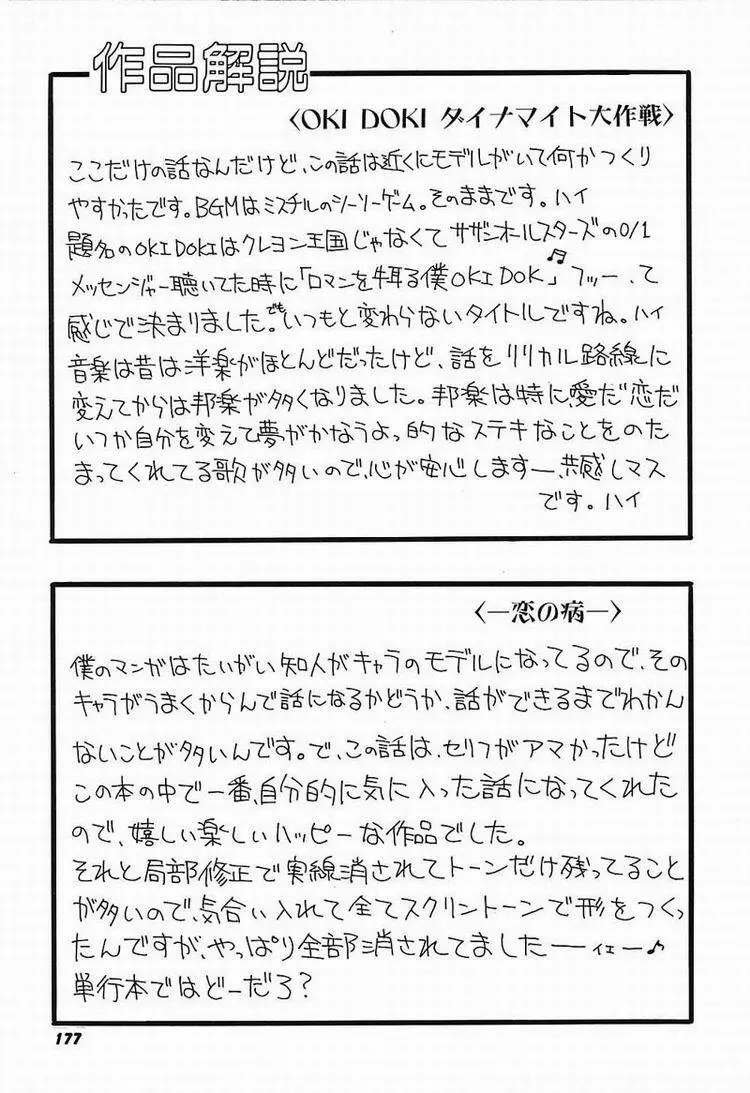 作品解説
〈OKI DOKI ダイナマイト大作戦〉
ここだけの話なんだけど、この話は近くにモデルがいて何かつくり
やすかったです。BGMはミスチルのシーソーゲーム。そのままです。ハイ
題名のOKIDOKIはクレヨン王国じゃなくてサザンオールスターズの0/1
メッセンジャー聴いてた時に「ロマンを牛耳る僕OKIDOK♫」フッー、て
感じで決まりました。でもいつもと変わらないタイトルですね。ハイ
音楽は昔は洋楽がほとんどだったけど、話をリリカル路線に
変えてからは邦楽が多くなりました。邦楽は特に、愛だ恋だ
いつか自分を変えて夢がかなうよっ的なステキなことをのた
まってくれてる歌が多いので、心が安心しますー、共感しマス
です。ハイ
〈―恋の病―〉
僕のマンガはたいがい知人がキャラのモデルになってるので、その
キャラがうまくからんで話になるかどうか、話ができるまでわかん
ないことが多いんです。で、この話は、セリフがアマかったけど
この本の中で一番、自分的に気に入った話になってくれた
ので、嬉しい楽しいハッピーな作品でした。
それと局部修正で実線消されてトーンだけ残ってること
が多いので、気合い入れて全てスクリントーンで形をつくっ
たんですが、やっぱり全部消されてました――ィェー♪
単行本ではどーだろ？
177